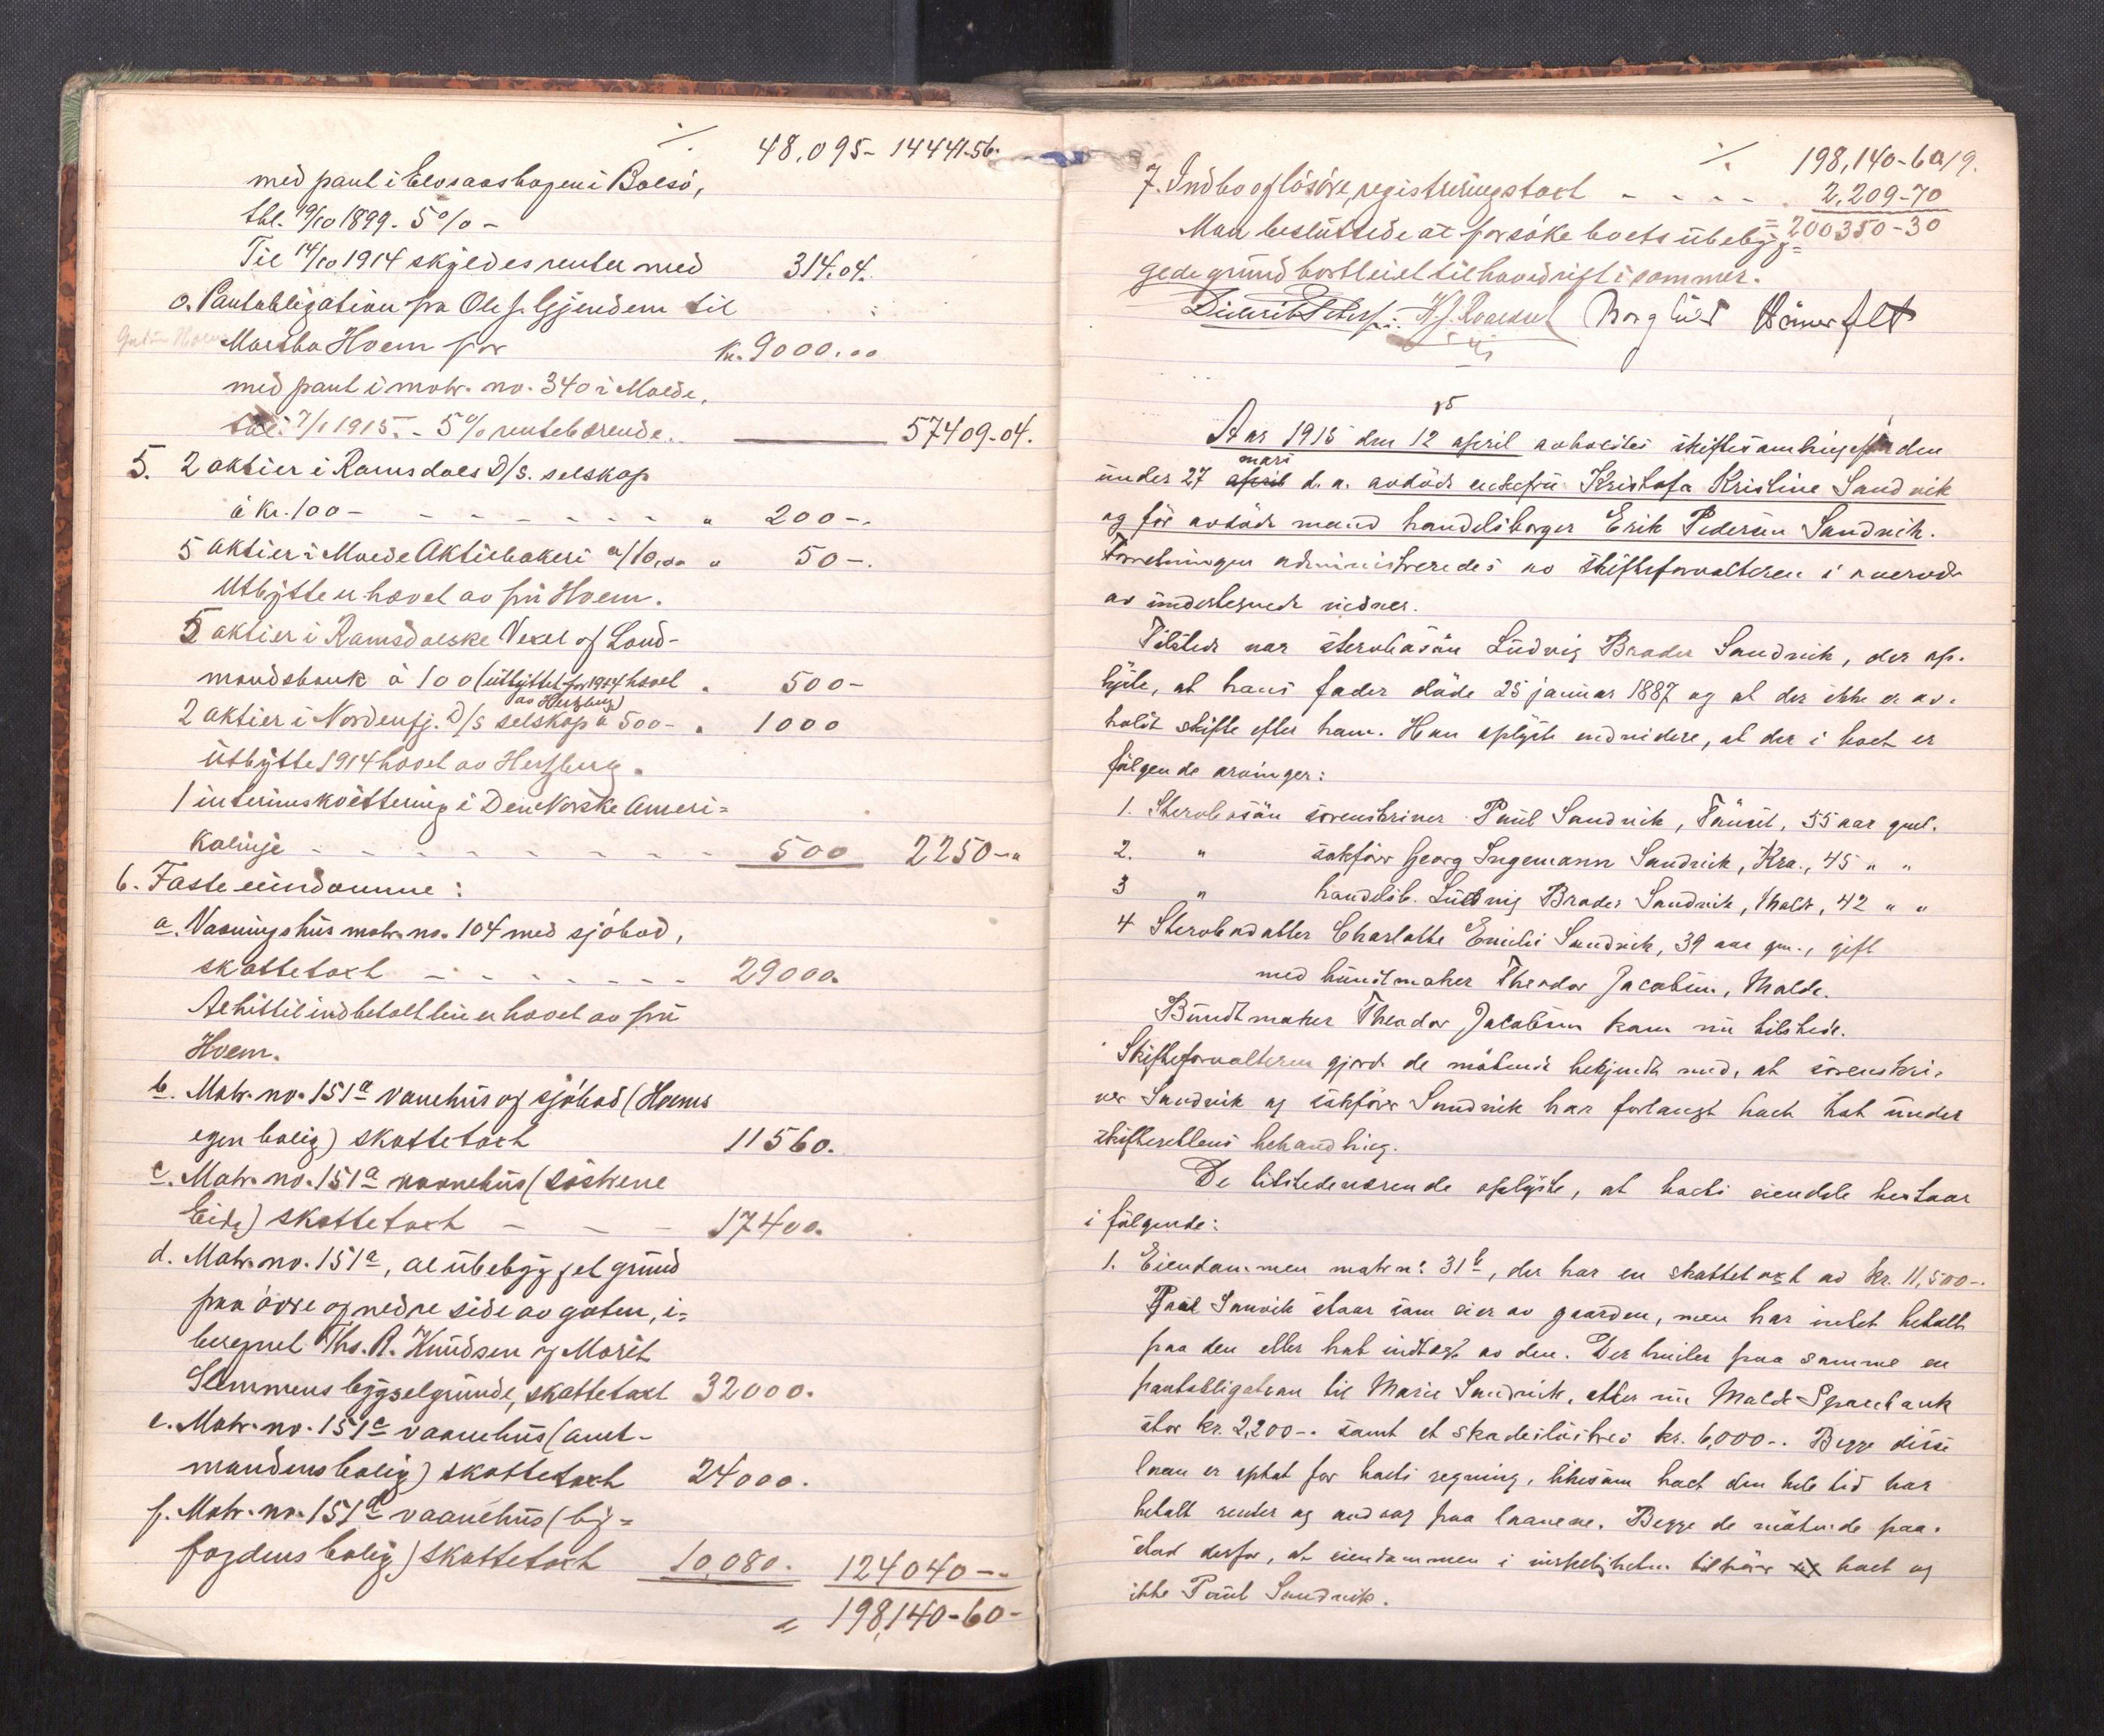 ./. 48,095- 14441-56.
med pant i Elvsaashagen i Bolsö,
tbl. 19/10 1899. 5% -
Til 14/10 1914 skyldes renter med 314.04.
o. Pantobligation fra Ole J. Gjendem til
Martha Hoem for kr. 9000.00
med pant i matr. no. 340 i Molde,
tbl. 7/1 1915. - 5% rentebærende. 57409-04.
5. 2 aktier i Romsdals D/s. selskap
à kr. 100 - - - - - - - " 200-.
5 aktier i Molde Aktiebakeri a/10,00 " 50-.
Utbytte er hævet av fru Hoem.
5 aktier i Romsdalske Vexel og Land-
mandsbank à 100 (utbyttet for 1914 hævet . 500-
av Hertzberg)
2 aktier i Nordenfj. D/s selskap à 500- . 1000
Utbytte 1914 hævet av Hertzberg.
1 interimskvittering i Den Norske Ameri=
kalinje - - - - - - - - 500 2250-"
6. Faste eiendomme:
a. Vaaningshus matr. no. 104 med sjöbod,
skattetaxt - - - - - - - 29000.
Al hittil indbetalt leie er hævet av fru
Hoem.
b. Matr. no. 151a vaanehus og sjöbod (Hoems
egen bolig) skattetaxt 11560.
c. Matr. no. 151a vaanehus (söstrene
Eide) skattetaxt - - - 17400.
d. Matr. no. 151a, al übebygget grund
paa övre og nedre side av gaten, i=
beregnet Ths. R. Knudsen og Marit
Slemmens bygselgrunde, skattetaxt 32000.
e. Matr. no. 151c vaanehus (amt-
mandens bolig) skattetaxt 24000.
f. Matr. no. 151d vaanehus (by=
fogdens bolig) skattetaxt 10,080. 124040--
= 198,140-60-
./. 198,140-60 19.
7. Indbo og lösöre, registreringstaxt - - - - . 2,209-70
Man besluttede at forsöke boets ubebyg= = 200350-30
gede grund bortleiet til havedrift i sommer.
15
Aar 1915 den 12 april avholdtes skiftesamling i den
mars
under 27 april d. a. avdöde enkefru Kristofa Kristine Sandvik
og för avdöde mand handelsborger Erik Pedersen Sandvik.
Forretningen administreredes av skifteforvalteren i overvær
av undertegnede vidner.
Tilstede var stervbosön Ludvig Broder Sandvik, der op-
lyste, at hans fader döde 25 januar 1887 og at der ikke er av-
holdt skifte efter ham. Han oplyste endvidere, at der i boet er
fölgende arvinger:
1. Stervbosön sorenskriver Paul Sandvik, Tönset, 55 aar gml.
2. " sakförer Georg Ingemann Sandvik, Kra., 45 " "
3 " handelsb. Ludvig Broder Sandvik, Molde, 42 " "
4 Stervbodatter Charlotte Emilie Sandvik, 39 aar gm., gift
med buntmaker Theodor Jacobsen, Molde.
Bundtmaker Theodor Jacobsen kom nu tilstede.
Skifteforvalteren gjorde de mötende bekjendt med, at sorenskri-
ver Sandvik og sakförer Sandvik har forlangt boet tat under
skifterettens behandling.
De tilstedeværende oplyste, at boets eiendele bestaar
i fölgende:
1. Eiendommen matr no. 31b, der har en skattetaxt av kr. 11,500-.
Paul Sanvik staar som eier av gaarden, men har intet betalt
paa den eller hat indtægt av den. Der hviler paa samme en
pantobligation til Marie Sandvik, eller nu Molde Sparebank
stor kr. 2,200-. samt et skadeslösbrev kr. 6,000-. Begge disse
laan er optat for boets regning, likesom boet den hele tid har
betalt renter og avdrag paa laanene. Begge de mötende paa-
stod derfor, at eiendommen i virkeligheten tilhörer boet og
ikke Paul Sandvik.